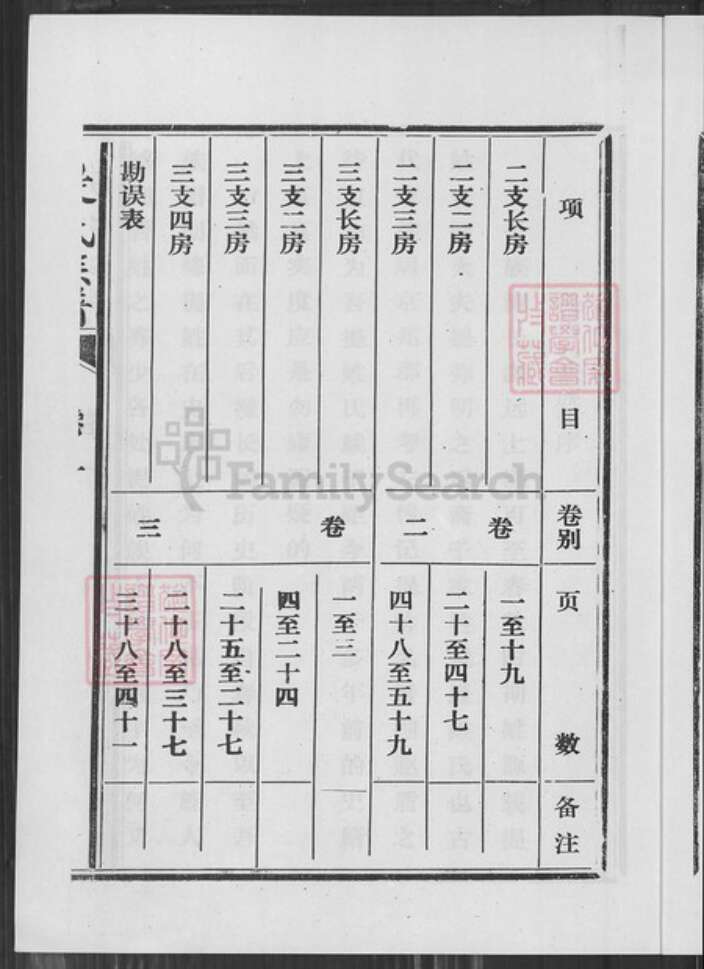 项目 卷别 页数 备注
二支长房 卷二 一至十九
二支二房 二十至四十七
二支三房 四十八至五十九
三支长房 卷三 一至三
三支二房 四至二十四
三支三房 二十五至二十七
三支四房 二十八至三十七
勘误表 三十八至四十一
FamilySearch